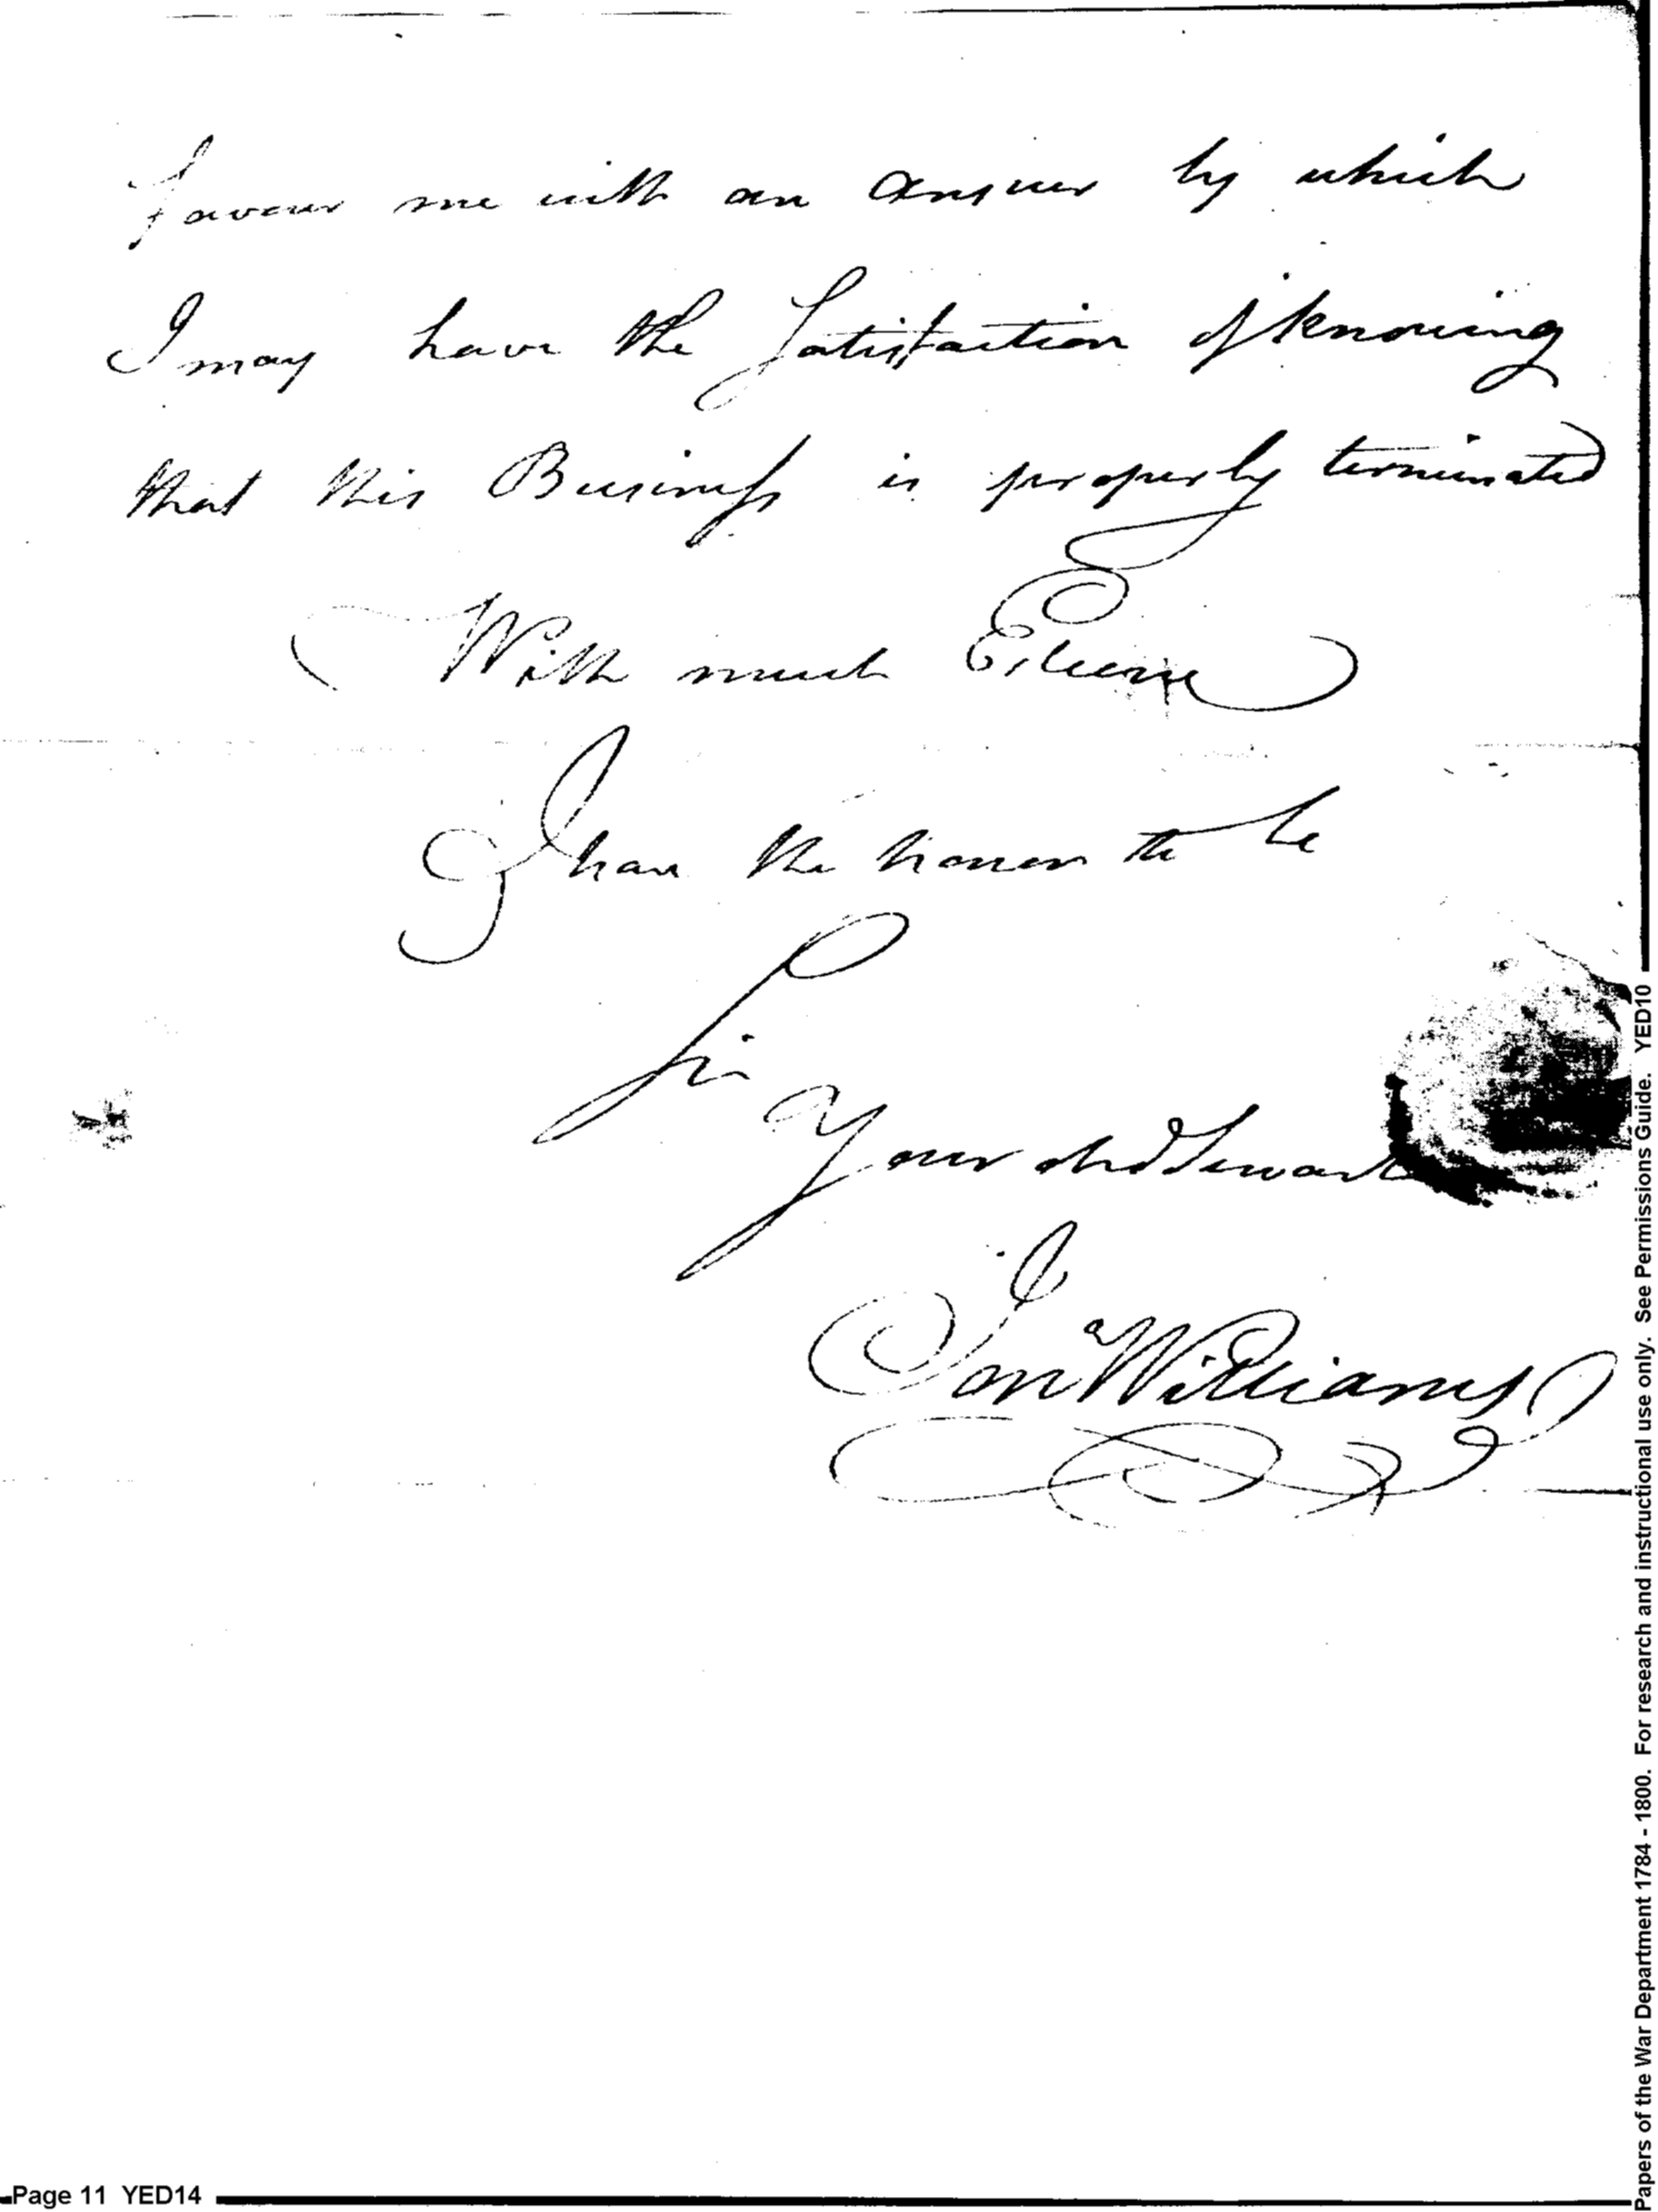 favour me with an answer by which
I may have the Satisfaction of knowing
that this Business is properly terminated
With much Esteem
I have the honor to be
Sir
Your obed Servant
Jona Williams
Papers of the War Department 1784 - 1800. For research and instructional use only. See Permissions Guide. YED10
Page 11 YED14